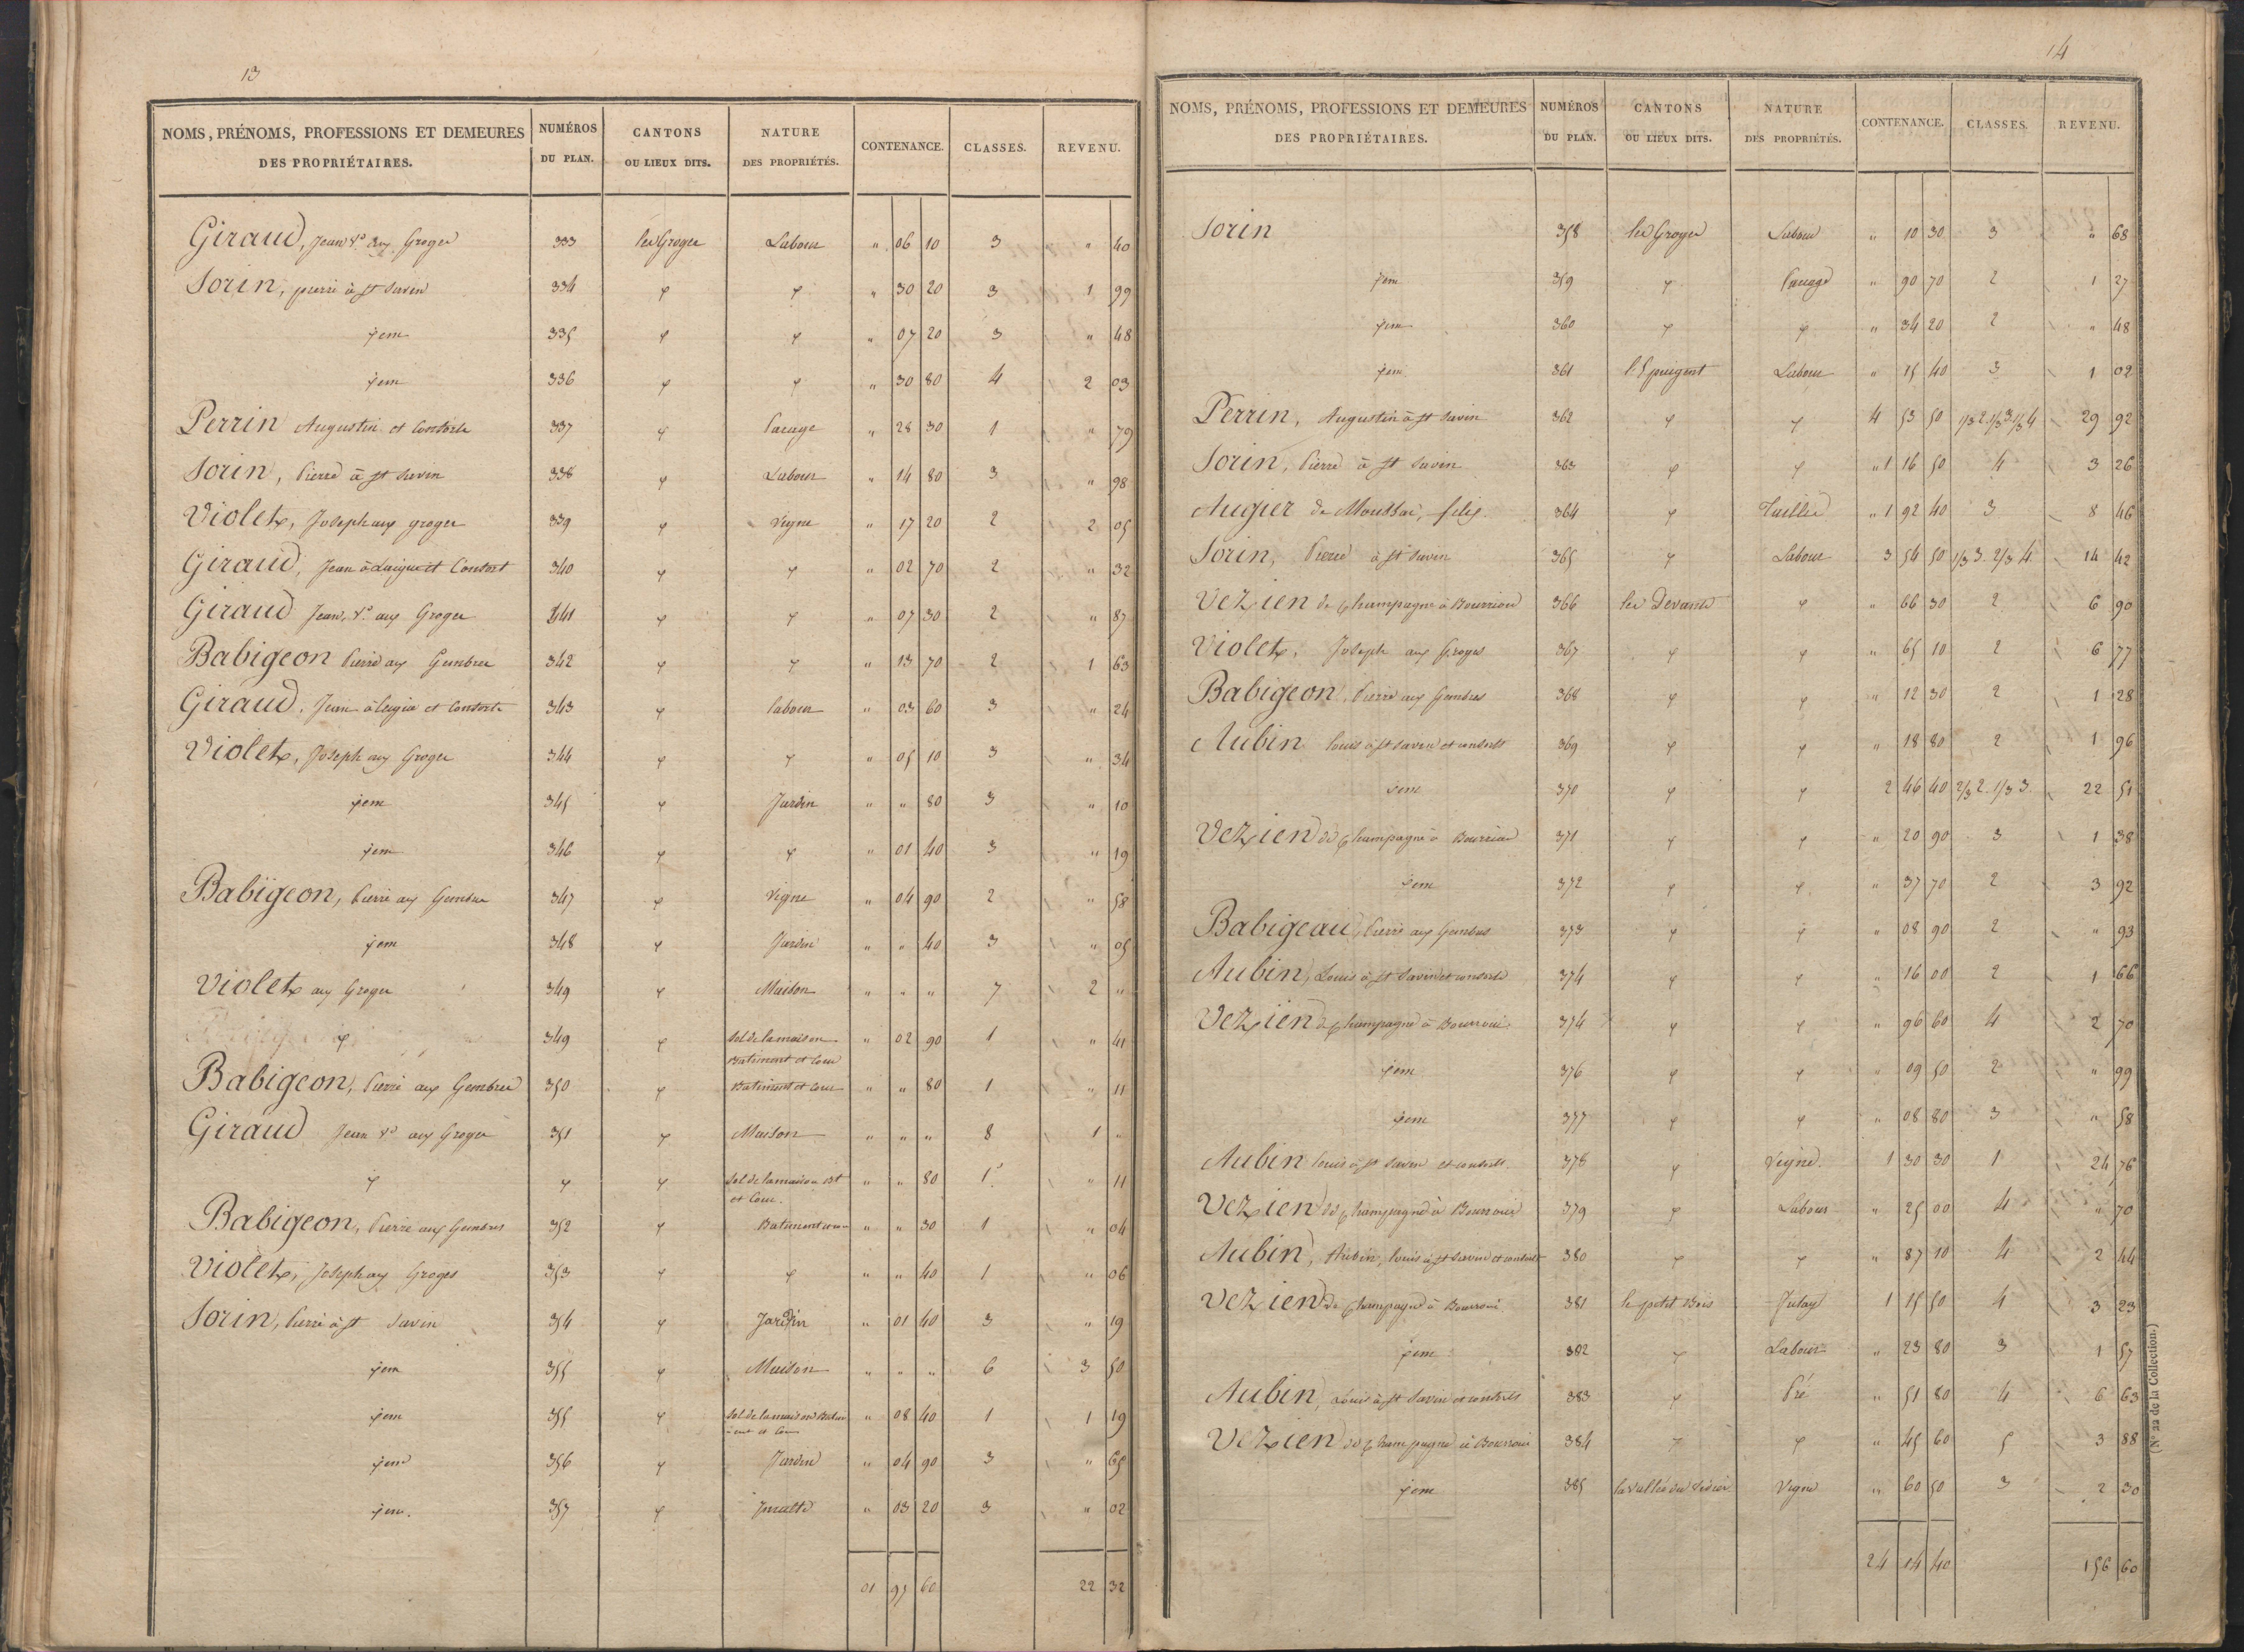 13
NOMS, PRÉNOMS, PROFESSIONS ET DEMEURES DES PROPRIÉTAIRES. NUMÉROS DU PLAN. CANTONS OU LIEUX DITS. NATURE DES PROPRIÉTÉS. CONTENANCE. CLASSES. REVENU.
Giraud, Jean Vᵉ aux Groges 333 les Groges Labour " 06 10 3 " 40
Sorin, pierre à St Savin 334 φ φ " 30 20 3 1 99
φem 335 φ φ " 07 20 3 " 48
φem 336 φ φ " 30 80 4 2 03
Perrin Augustin et Consorts 337 φ Pacage " 28 30 1 " 79
Sorin, Pierre à St Savin 338 φ Labour " 14 80 3 " 98
Violet, Joseph aux groges 339 φ Vigne " 17 20 2 2 05
Giraud, Jean à et Consort 340 φ φ " 02 70 2 " 32
Giraud Jean, Vᵉ aux Groges 341 φ φ " 07 30 2 " 87
Babigeon Pierre aux Gembres 342 φ φ " 13 70 2 1 63
Giraud, Jean à et Consorts 343 φ labour " 03 60 3 " 24
Violet, Joseph aux Groges 344 φ φ " 05 10 3 " 34
φem 345 φ Jardin " " 80 3 " 10
φem 346 φ φ " 01 40 3 " 19
Babigeon, Pierre aux Gembres 347 φ Vigne " 04 90 2 " 58
φem 348 φ Jardin " " 40 3 " 05
Violet aux Groges 349 φ Maison " " " 7 2 "
φ 349 φ Sol de la maison " 02 90 1 " 41
Batiment et Cour
Babigeon, Pierre aux Gembres 350 φ Batiment et Cour " " 80 1 " 11
Giraud Jean Vᵉ aux Groges 351 φ Maison " " " 8 1 "
φ φ φ Sol de la maison Bt " " 80 1 " 11
et Cour.
Babigeon, Pierre aux Gembres 352 φ Batiment " " 30 1 " 04
Violet, Joseph aux Groges 353 φ φ " " 40 1 " 06
Sorin, Pierre à St Savin 354 φ Jardin " 01 40 3 " 19
φem 355 φ Maison " " " 6 3 50
φem 355 φ Sol de la maison Batim " 08 40 1 1 19
-ent et Cour
φem 356 φ Jardin " 04 90 3 " 65
φem. 357 φ " 03 20 3 " 02
01 95 60 22 32
14
NOMS, PRÉNOMS, PROFESSIONS ET DEMEURES DES PROPRIÉTAIRES. NUMÉROS DU PLAN. CANTONS OU LIEUX DITS. NATURE DES PROPRIÉTÉS. CONTENANCE. CLASSES. REVENU.
Sorin 358 les Groges Labour " 10 30 3 " 68
φem 359 φ Pacage " 90 70 2 1 27
φem 360 φ φ " 34 20 2 " 48
φem 361 Labour " 15 40 3 1 02
Perrin, Augustin à St Savin 362 φ φ 4 53 50 1/3 2. 1/3 3 1/3 4 29 92
Sorin, Pierre à St Savin 363 φ φ " 1 16 50 4 3 26
Augier de Moussac, félix. 364 φ Taillis " 1 92 40 3 8 46
Sorin, Pierre à St Savin 365 φ Labour 3 54 50 1/3 3. 2/3 4. 14 42
Vezien de Champagne à Bourriou 366 les Devants φ " 66 30 2 6 90
Violet, Joseph aux Groges 367 φ φ " 65 10 2 6 77
Babigeon, Pierre aux Gembres 368 φ φ " 12 30 2 1 28
Aubin louis à St Savin et consorts 369 φ φ " 18 80 2 1 96
φem 370 φ φ 2 46 40 2/3 2. 1/3 3. 22 51
Vezien de Champagne à Bourriou 371 φ φ " 20 90 3 1 38
φem 372 φ φ " 37 70 2 3 92
Babigeau, Pierre aux Gembres 373 φ φ " 08 90 2 " 93
Aubin, Louis à St Savin et consorts 374 φ φ " 16 00 2 1 66
Vezien de Champagne à Bourroux 374 φ φ " 96 60 4 2 70
φem 376 φ φ " 09 50 2 " 99
φem 377 φ φ " 08 80 3 " 58
Aubin louis à St Savin et consorts. 378 φ Vigne. 1 30 30 1 24 76
Vezien de Champagne à Bourroux 379 φ Labour " 25 00 4 " 70
Aubin, Aubin, louis à St Savin et consorts 380 φ φ " 87 10 4 2 44
Vezien de Champagne à Bourroux 381 le petit Bois Futay 1 15 50 4 3 23
φem 382 φ Labour " 23 80 3 1 57
Aubin, Louis à St Savin et consorts 383 φ Pré " 51 80 4 6 63
Vezien de Champagne à Bourroux 384 φ φ " 45 60 5 3 88
φem 385 la vallée du Vigne " 60 50 3 2 30
24 14 40 156 60
(Nº 22 de la Collection.)